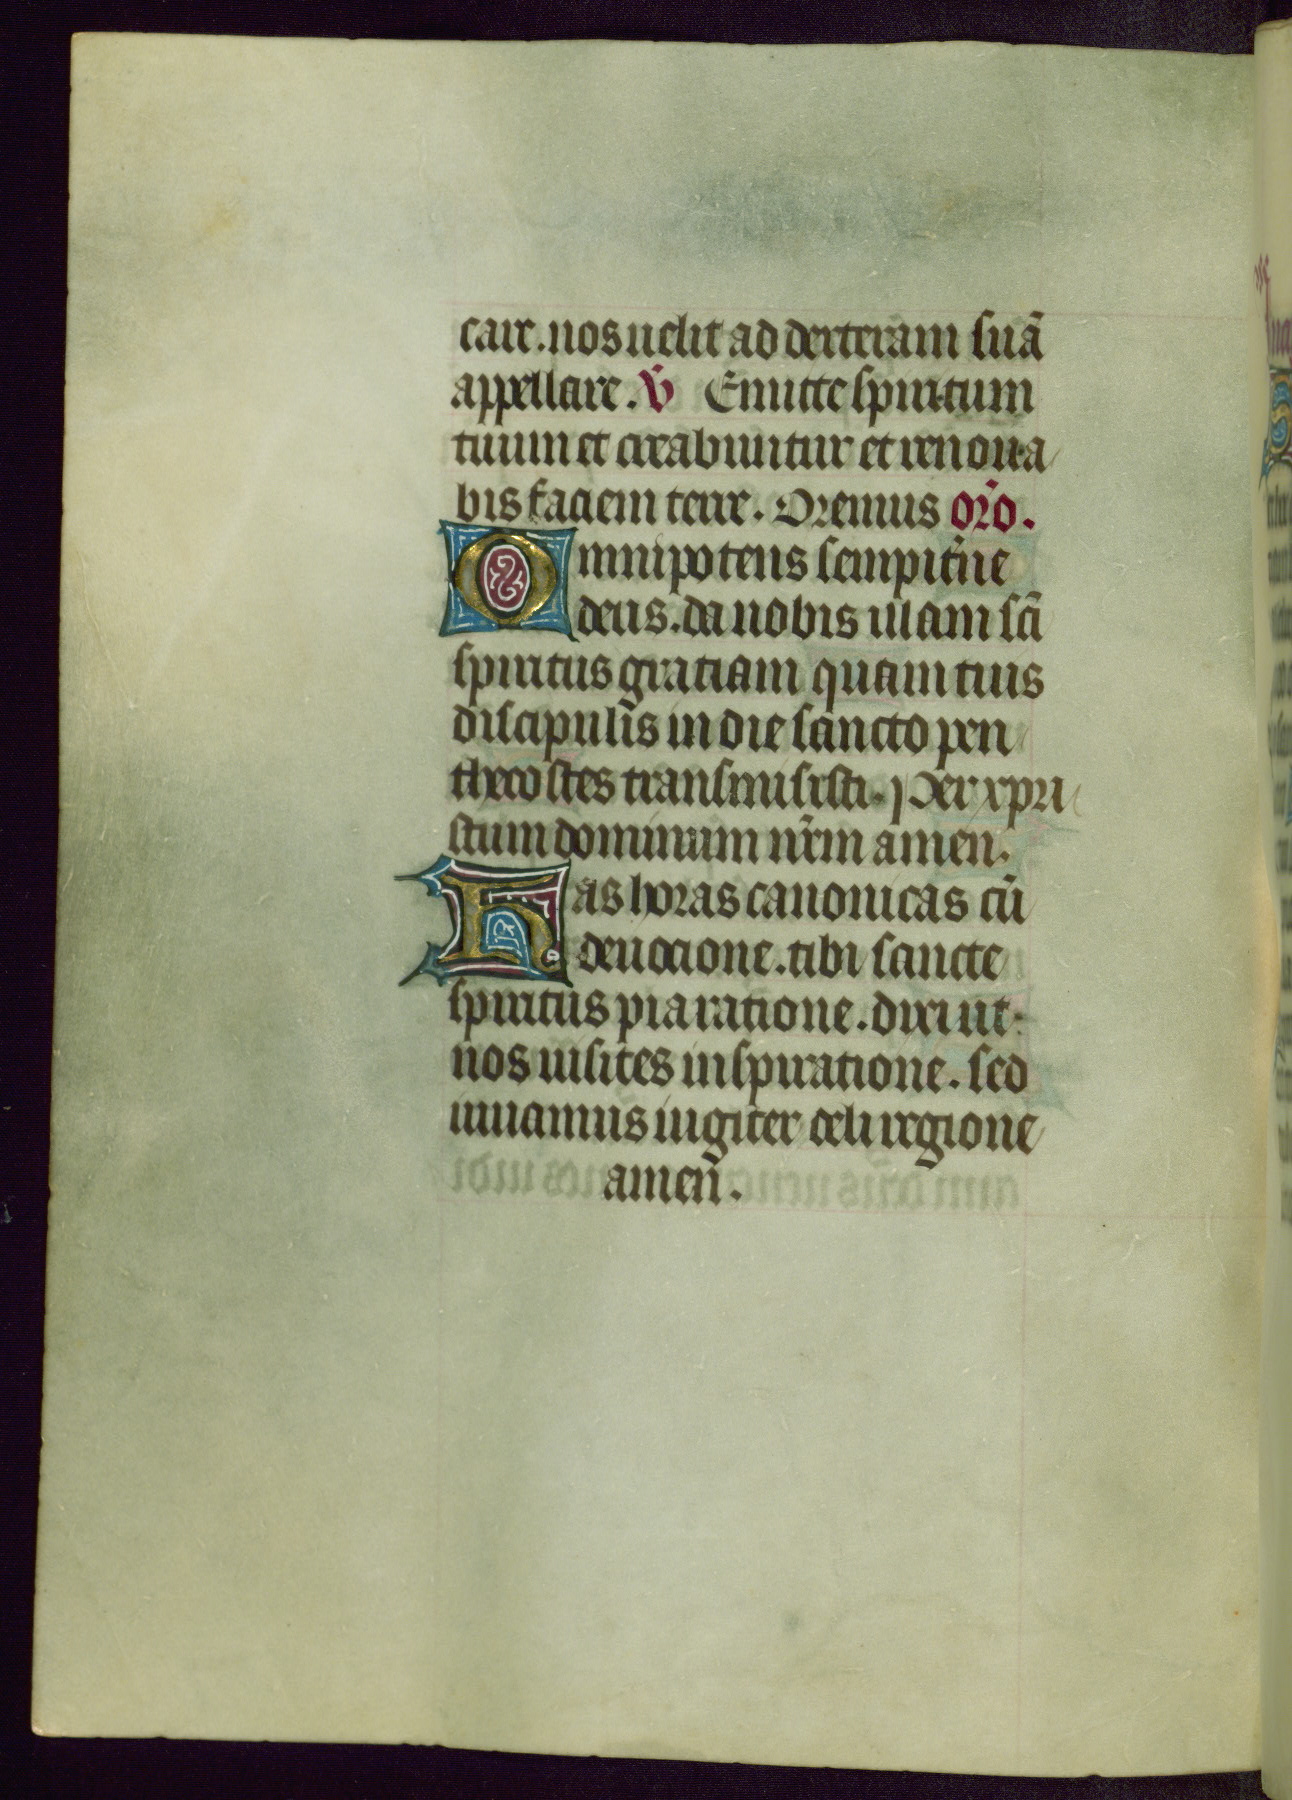 care. nos uelit ad dexteram suã
appellare. V̄ Emitte spiritum
tuum et creabuntur et renoua
bis faciem terre. Oremus or̄o.
Omnipotens sempit̄ne
deus. da nobis illam sc̄i
spiritus gratiam quam tuis
discipulis in die sancto pen
thecostes transmisisti. Per xpri
stum dominum nr̄m amen.
Has horas canonicas cū
deuocione. tibi sancte
spiritus pia ratione. dixi ut
nos uisites inspiratione. sed
uiuamus iugiter celi regione
amen̄.